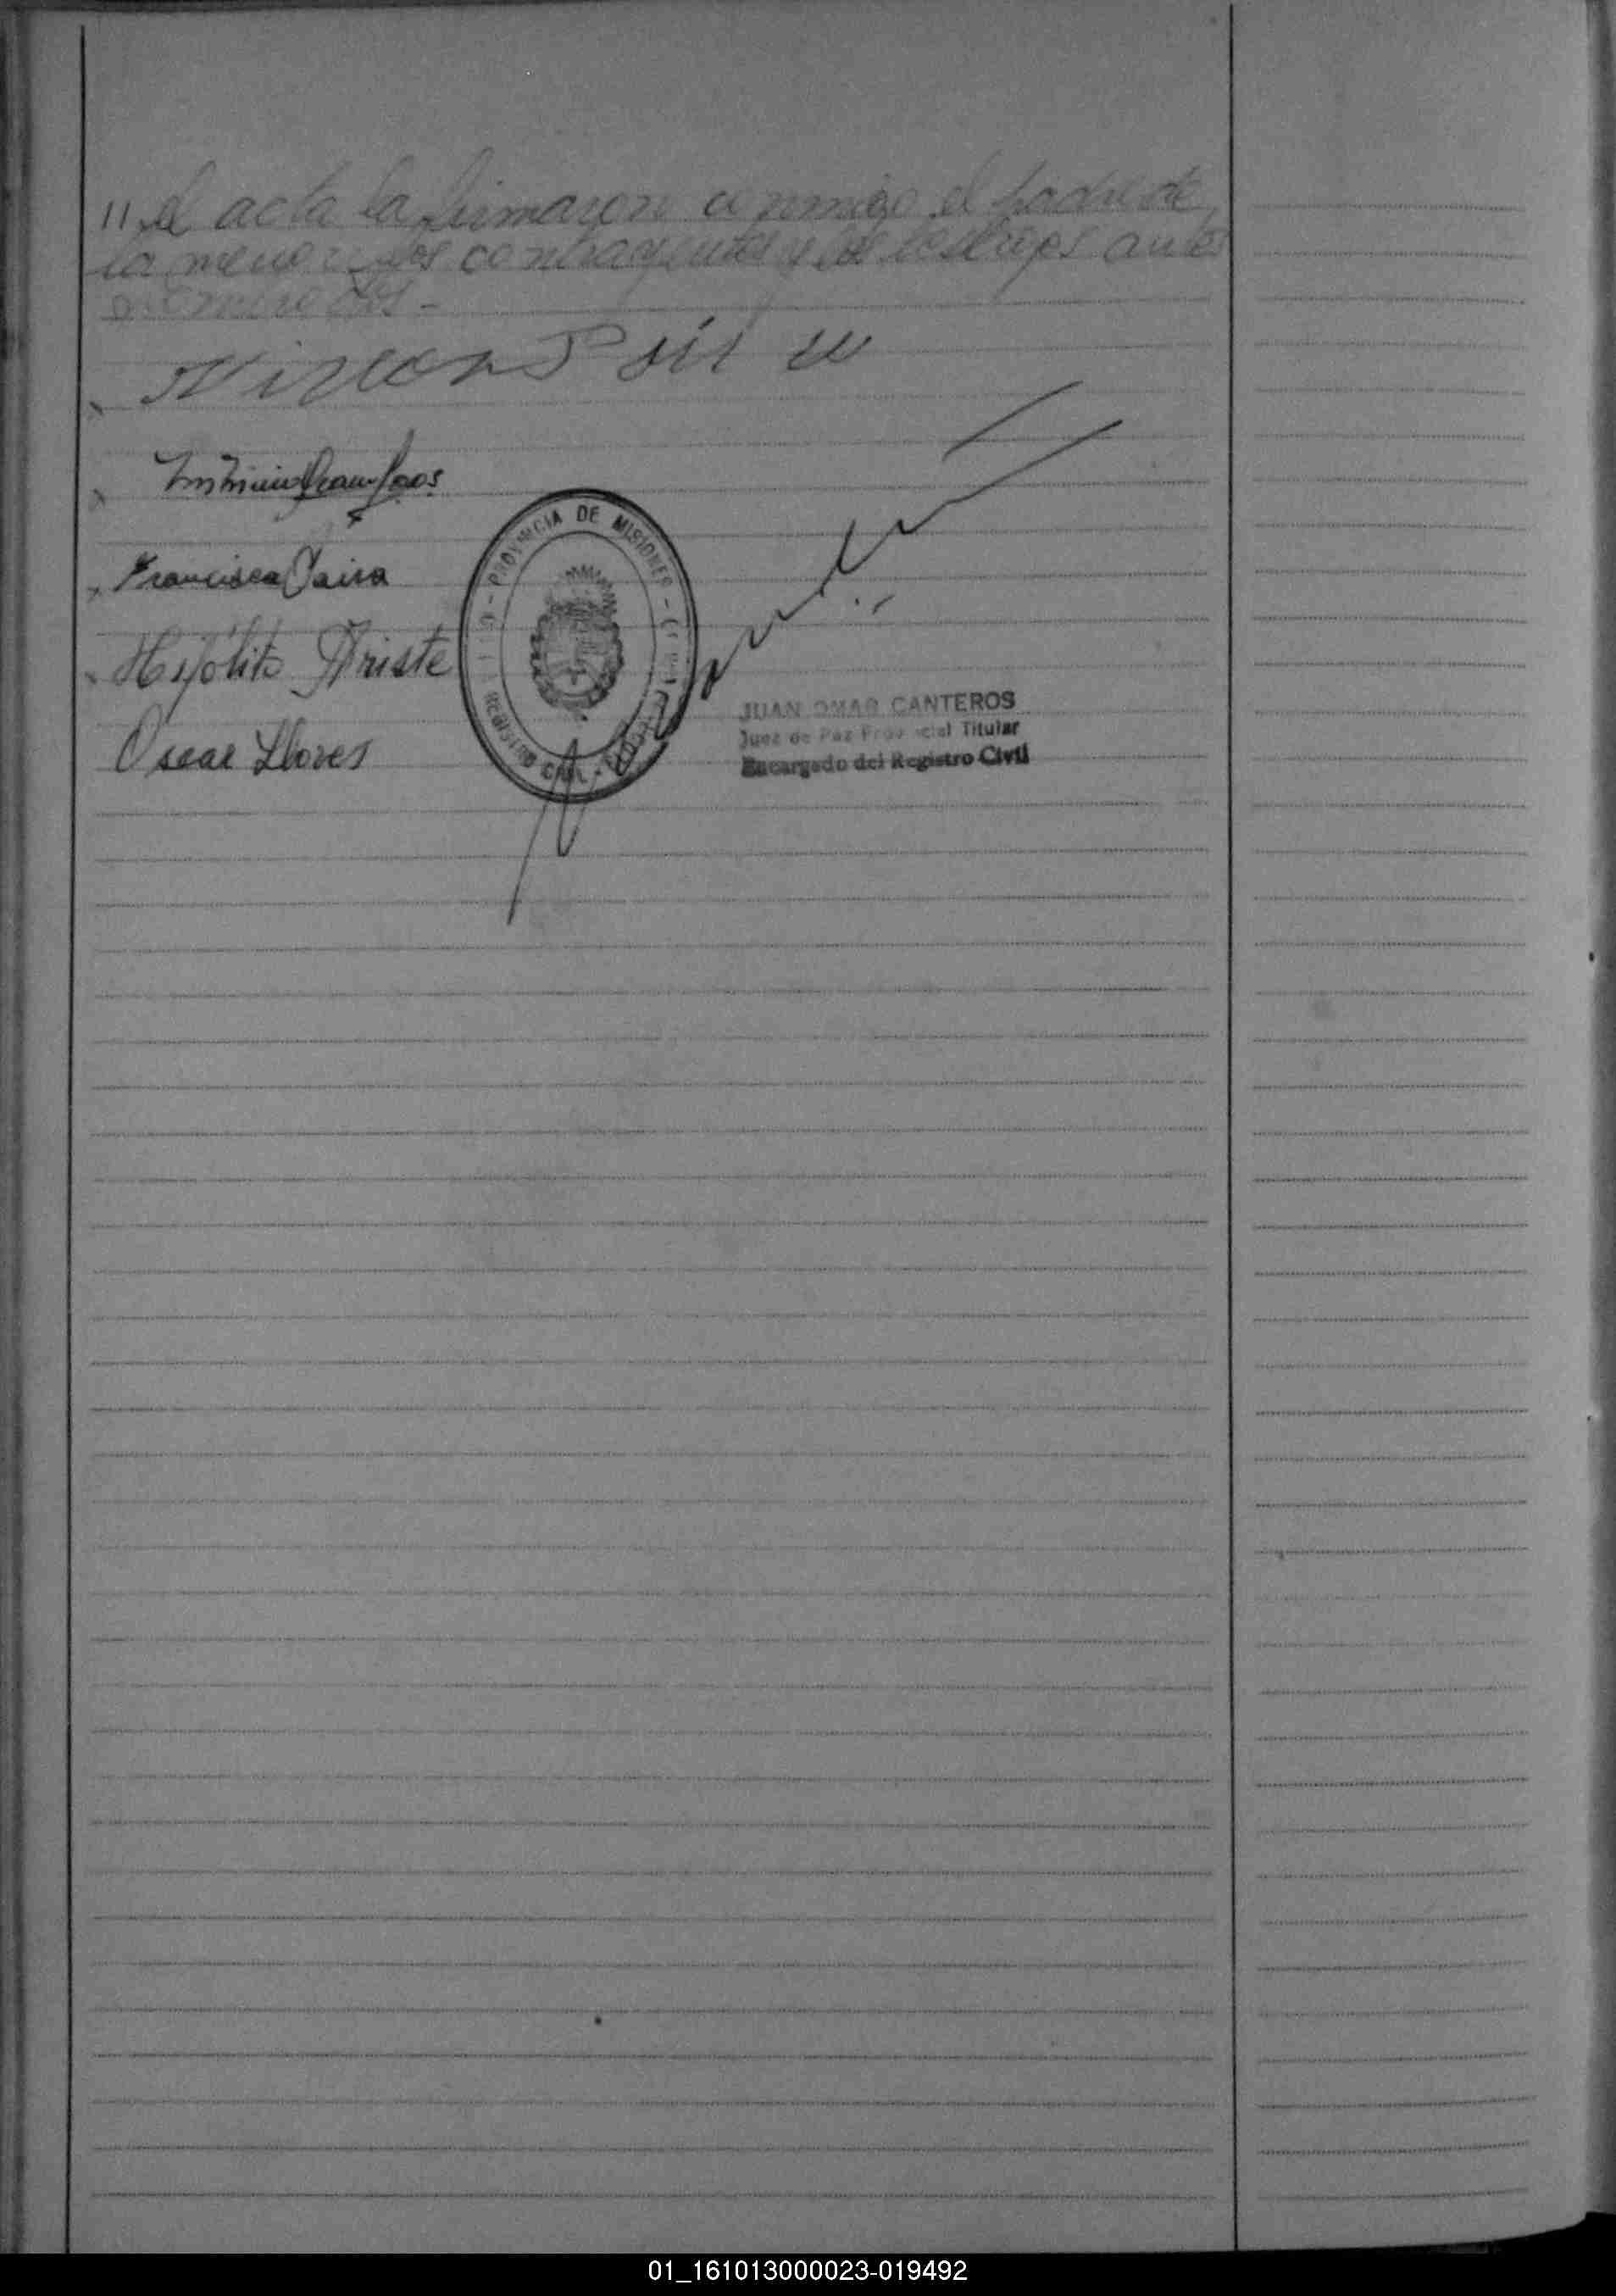 11 el acta la firmaron conmigo el padre de
la menor y los contrayentes y los testigos antes
nominados.-
Francisca Paiva
Hipólito Ariste
Oscar Llores
PROVINCIA DE MISIONES
REGISTRO CIVIL
JUAN OMAR CANTEROS
Juez de Paz Provincial Titular
Encargado del Registro Civil
01_161013000023-019492